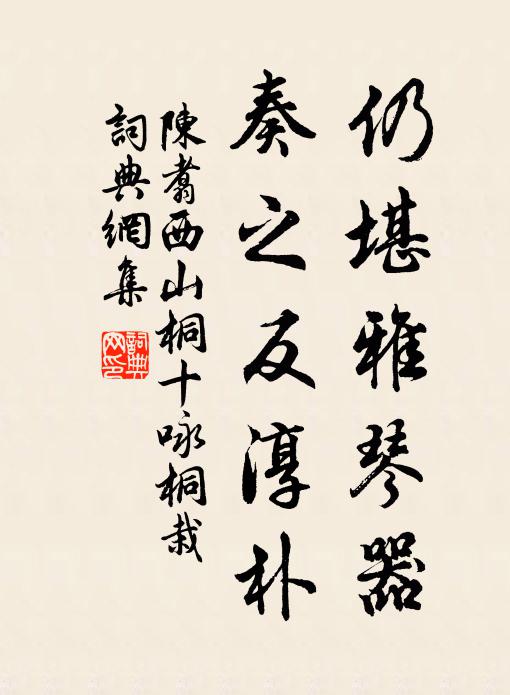 仍堪雅琴器
奏之反淳朴
陳翥西山桐十咏桐栽
詞典網集
詞典
网印